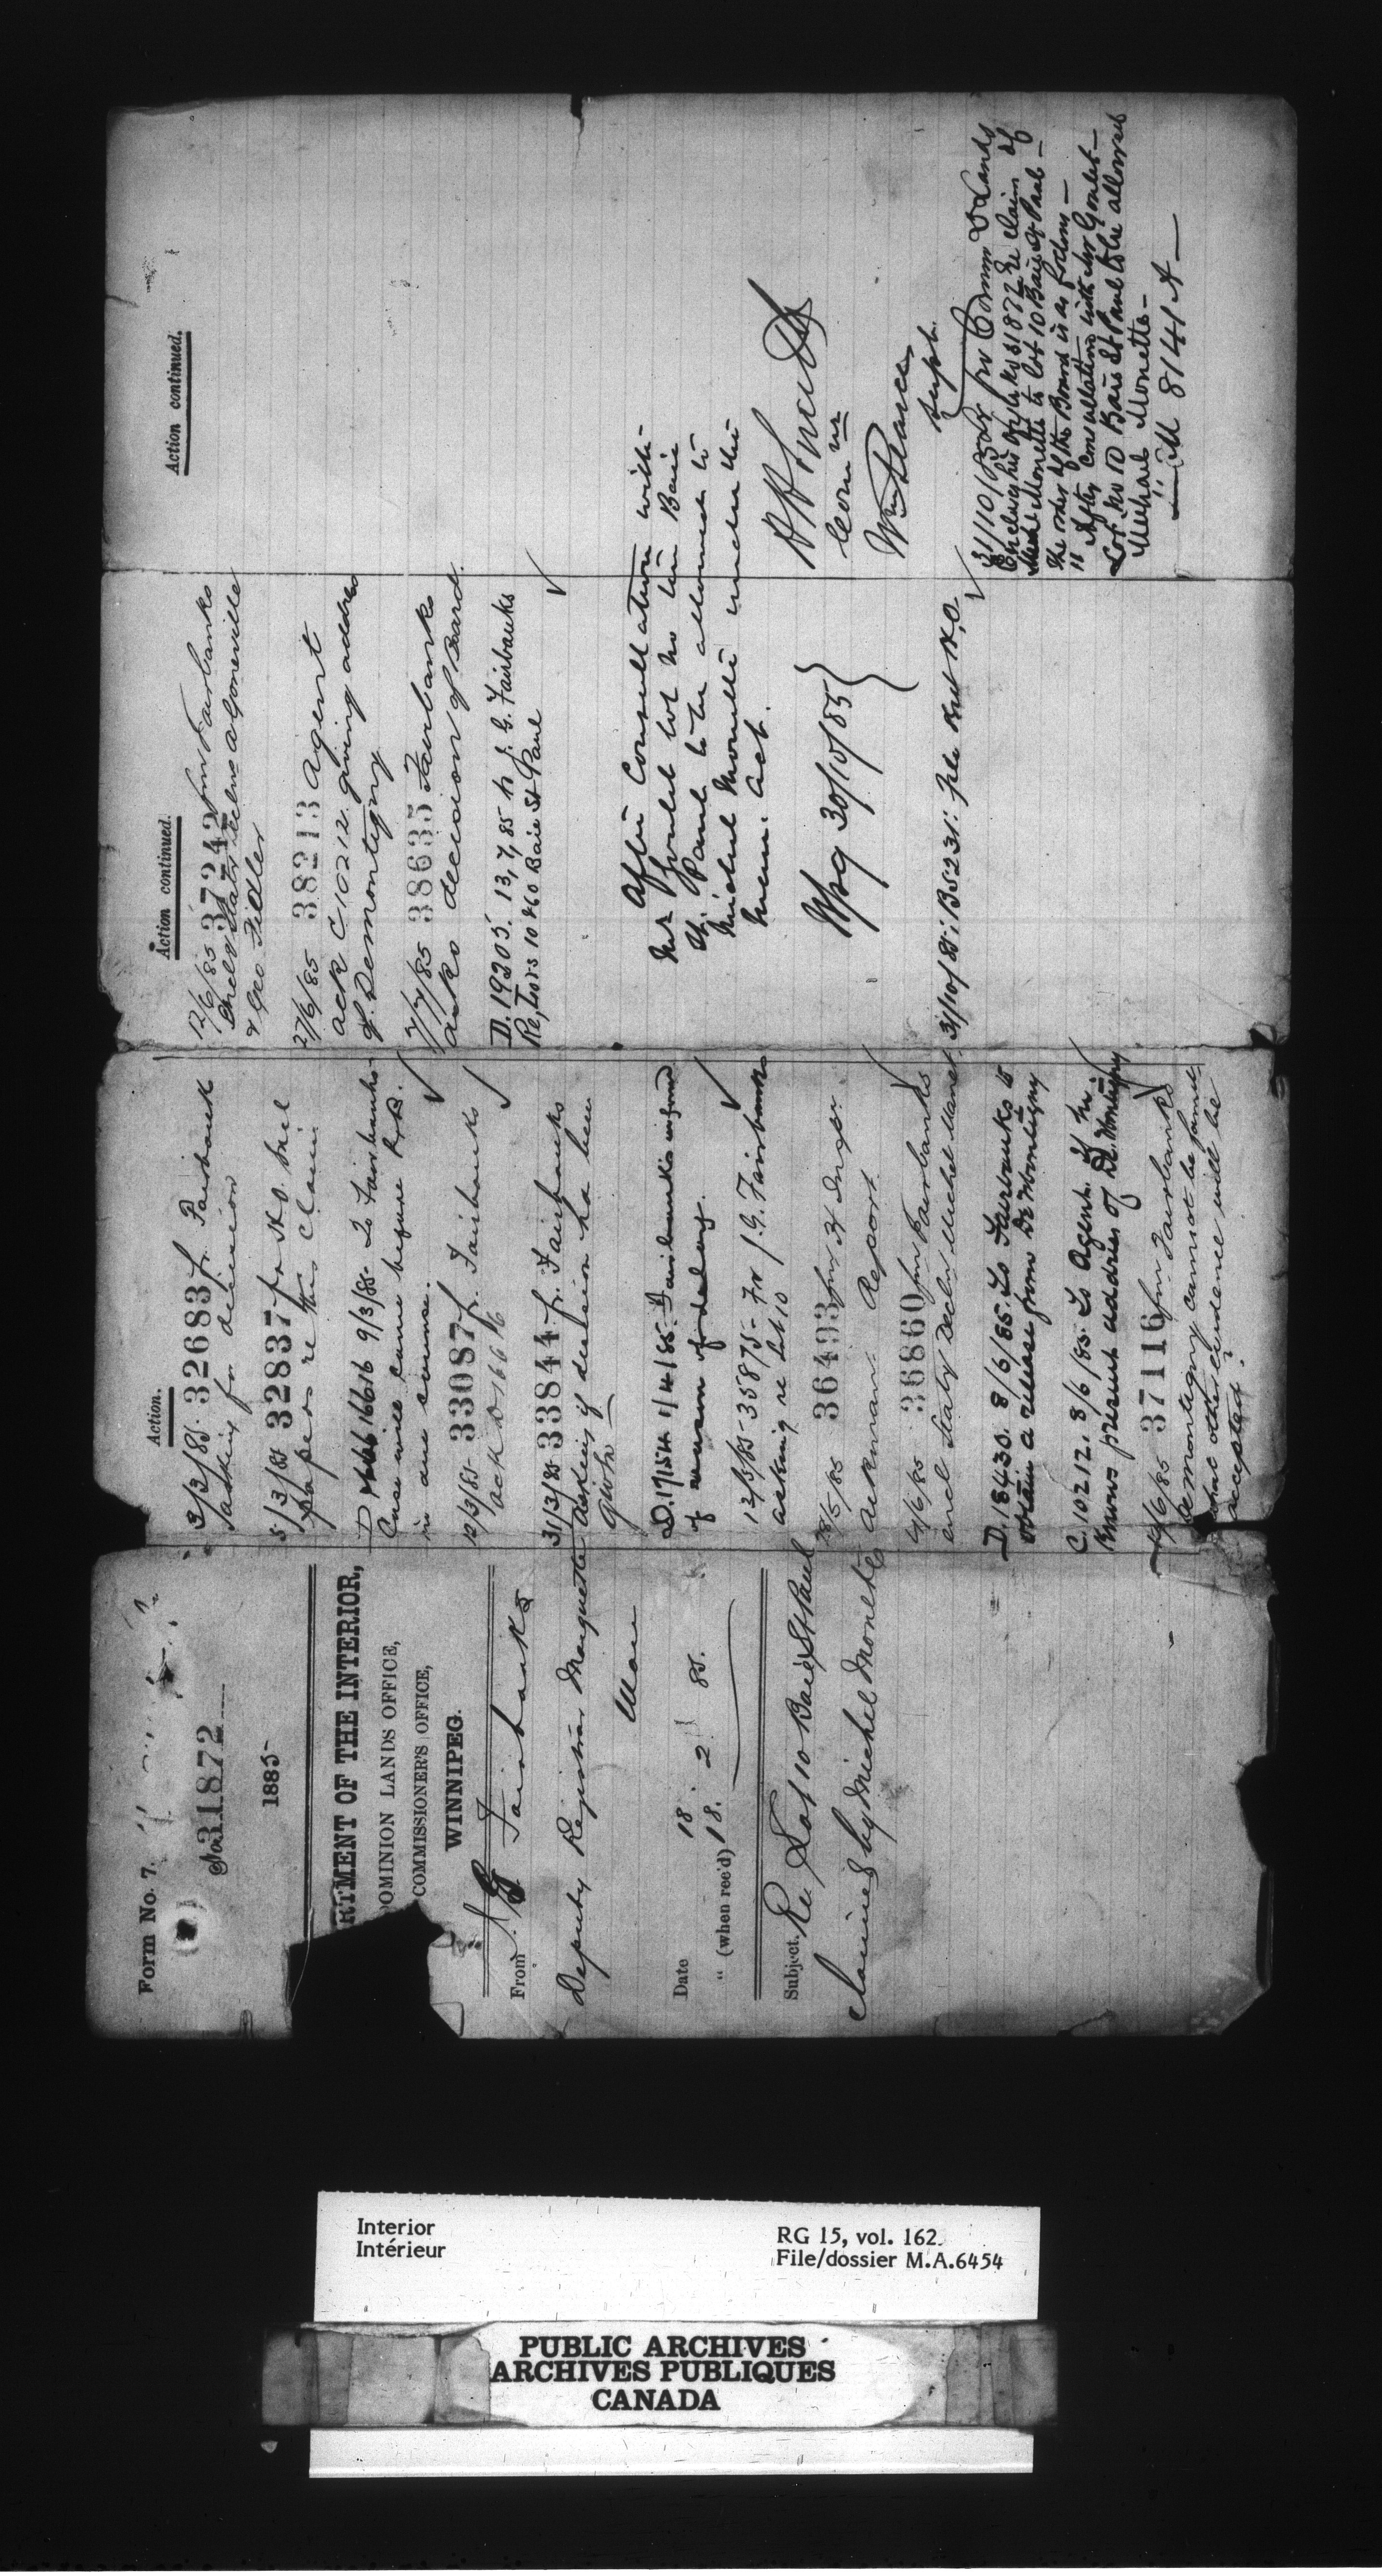 Form No. 7.
No 31872
1885
RTMENT OF THE INTERIOR,
DOMINION LANDS OFFICE,
COMMISSIONER'S OFFICE,
WINNIPEG.
From J G Fairbanks
Deputy Registrar Marquette
Man
Date 18 2 85.
" (when rec'd) 18.
Subject. Re Lot 10 Baie St Paul
claimed by Michel Monette
Action.
3/3/85. 32683 fr. Fairbank
asking for decision
5/3/85 32837 fr H.O. Encl
papers re this claim
D 16616 9/3/85 To Fairbanks
Case will come before L.B.
in due course.
12/3/85 33087 fr. Fairbanks
ack D 16616
31/3/85 33844 fr. Fairbanks
asking if decision has been
given
D.17154 1/4/85 Fairbanks informed
of reason of delay.
12/5/85 35875 Fr J.G. Fairbanks
asking re lot 10
28/5/85 36493 fm H Insper.
Ackman Report
4/6/85 36860 fm Fairbanks
encl Staty Decln Michel Monet
D. 18430. 8/6/85. To Fairbanks to
obtain a release from De Montigny
C. 10212. 8/6/85. To Agent. If he
knows present address of De Montigny
10/6/85 37116 fm Fairbanks
Demontigny cannot be found
what other evidence will be
accepted?
Action continued.
12/6/85 37242 fm Fairbanks
Encls Staty Declns A Goneville
& Geo Fidler
27/6/85 38213 Agent
ack C 10212 giving address
of Demontigny
7/7/85 38635 Fairbanks
asks decision of Board.
D. 19205. 13/7/85 to J. G. Fairbanks
Re, Lots 10 & 60 Baie St Paul
After Consultation with
Mr Goulet lot No ten Baie
St. Paul to be allowed to
Michel Monette under the
Mem. Act.
Wpg 30/10/85
31/10/85; B5231: file Ret H,O.
Action continued.
H H Smith
Comnr
Wm Pearce
Supt.
31/10/85 Dr fr Comnr D Lands
Encloses his file No 31872 re claim of
Michel Monette to lot 10 Baie St Paul —
The order of the Board is as follows —
" After Consultation with Mr Goulet —
Lot No 10 Baie St Paul to be allowed
Michael Monette —
M 8141 A —
Interior
Intérieur
RG 15, vol. 162
File/dossier M.A.6454
PUBLIC ARCHIVES
ARCHIVES PUBLIQUES
CANADA